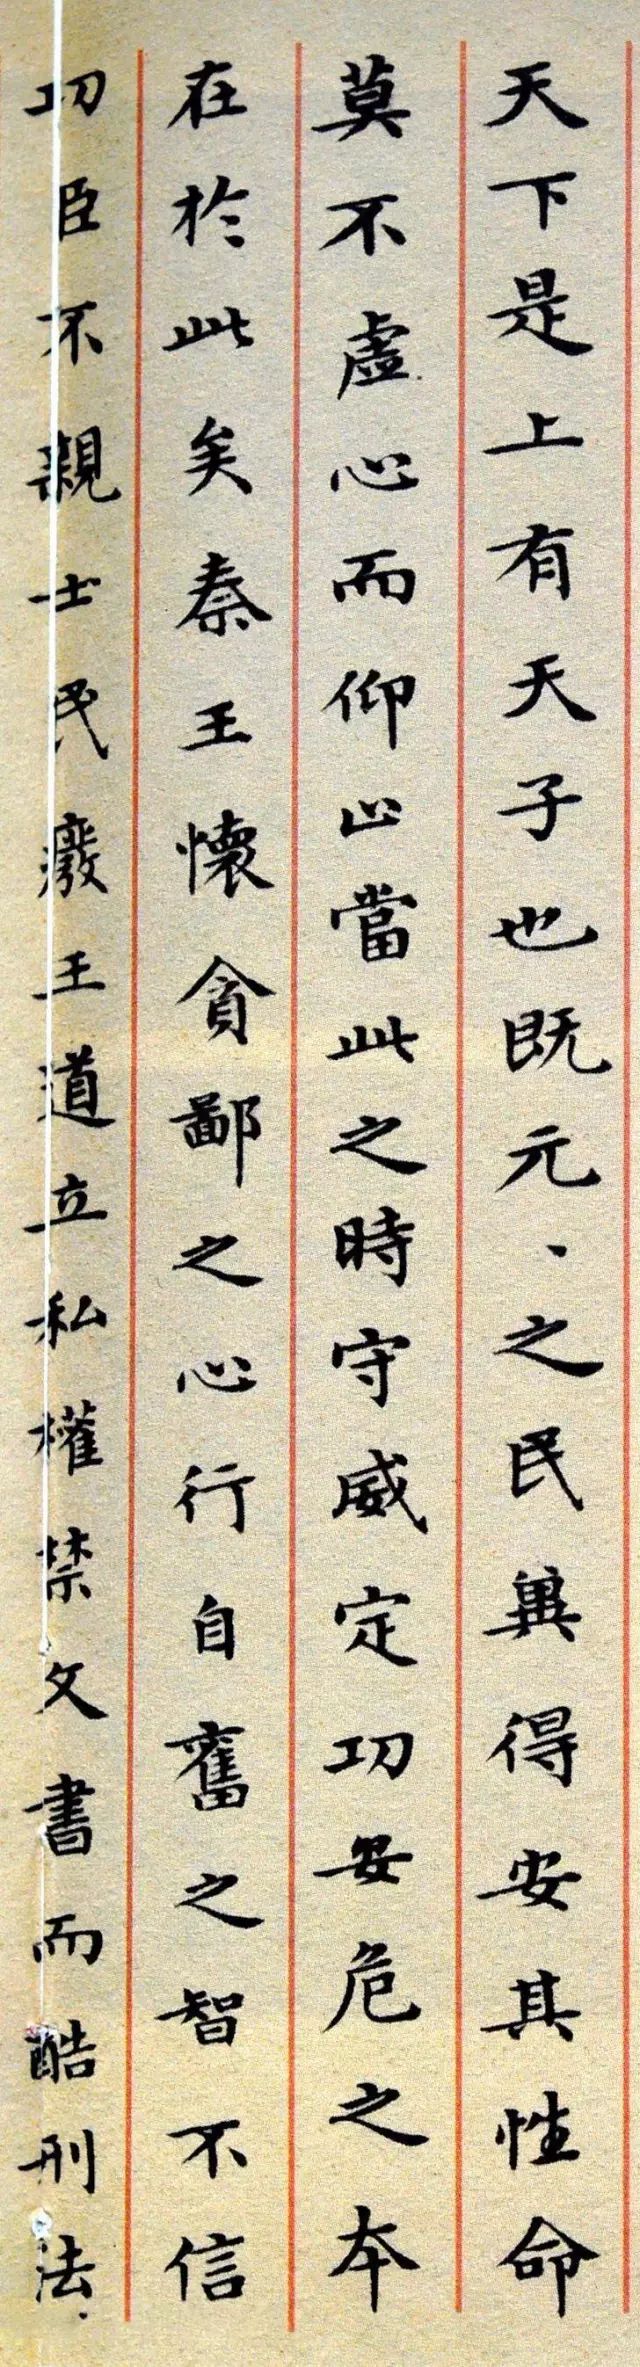 天下是上有天子也既元、之民冀得安其性命
莫不虛心而仰上當此之時守威定功安危之本
在於此矣秦王懷貪鄙之心行自奮之智不信
功臣不親士民廢王道立私權禁文書而酷刑法